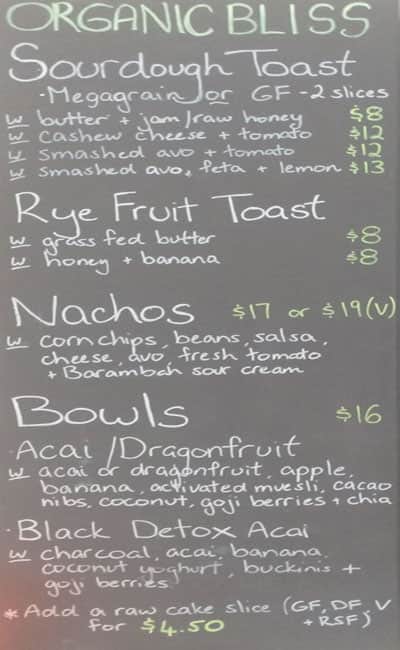 ORGANIC BLISS
Sourdough Toast
·Megagrain or GF - 2 slices
w butter + jam/raw honey $8
w cashew cheese + tomato $12
w smashed avo + tomato $12
w smashed avo, feta + lemon $13
Rye Fruit Toast
w grass fed butter $8
w honey + banana $8
Nachos $17 or $19(v)
w corn chips, beans, salsa,
cheese, avo, fresh tomato
+ Barambah sour cream
Bowls $16
·Acai / Dragonfruit
w acai or dragonfruit, apple,
banana, activated muesli, cacao
nibs, coconut, goji berries + chia
·Black Detox Acai
w charcoal, acai, banana,
coconut yoghurt, buckinis +
goji berries
* Add a raw cake slice (GF, DF, V
for $4.50 + RSF)